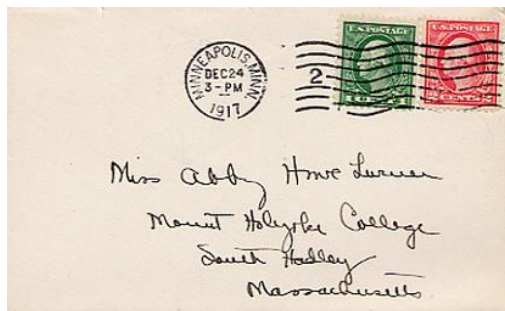 MINNEAPOLIS, MINN.
DEC 24
3-PM
1917
2
U.S. POSTAGE
U.S. POSTAGE
2 CENTS 2
Miss Abby Howe Turner
Mount Holyoke College
South Hadley
Massachusetts